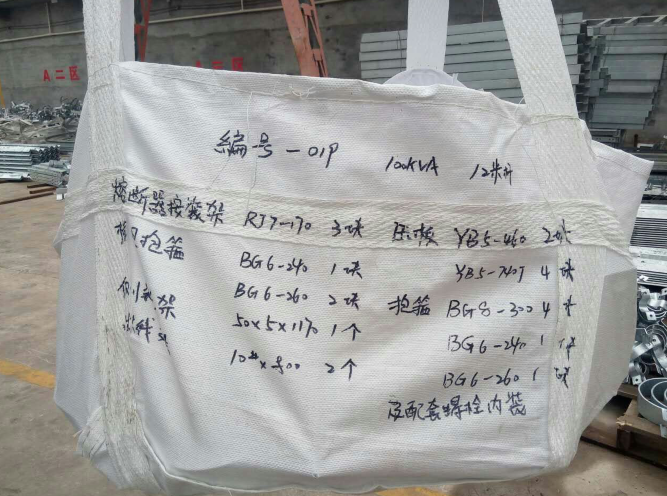 A二区
编号-01P 100KVA 12米杆
熔断器按装架 RJ7-170 3块
抱箍 BG6-240 1块
BG6-260 2块
架 50×5×1170 1个
10#× 2个
压板 YB5-460 2块
YB5-740T 4块
抱箍 BG8-300 4块
BG6-240 1块
BG6-260 1块
及配套螺栓内装